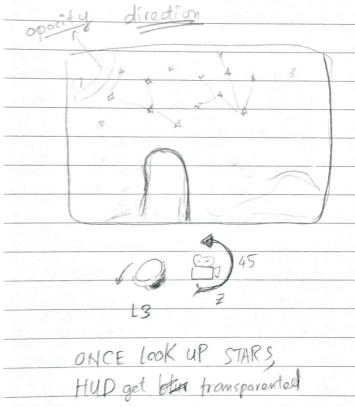 opacity direction
45
Z
L3
ONCE LOOK UP STARS,
HUD get transparented